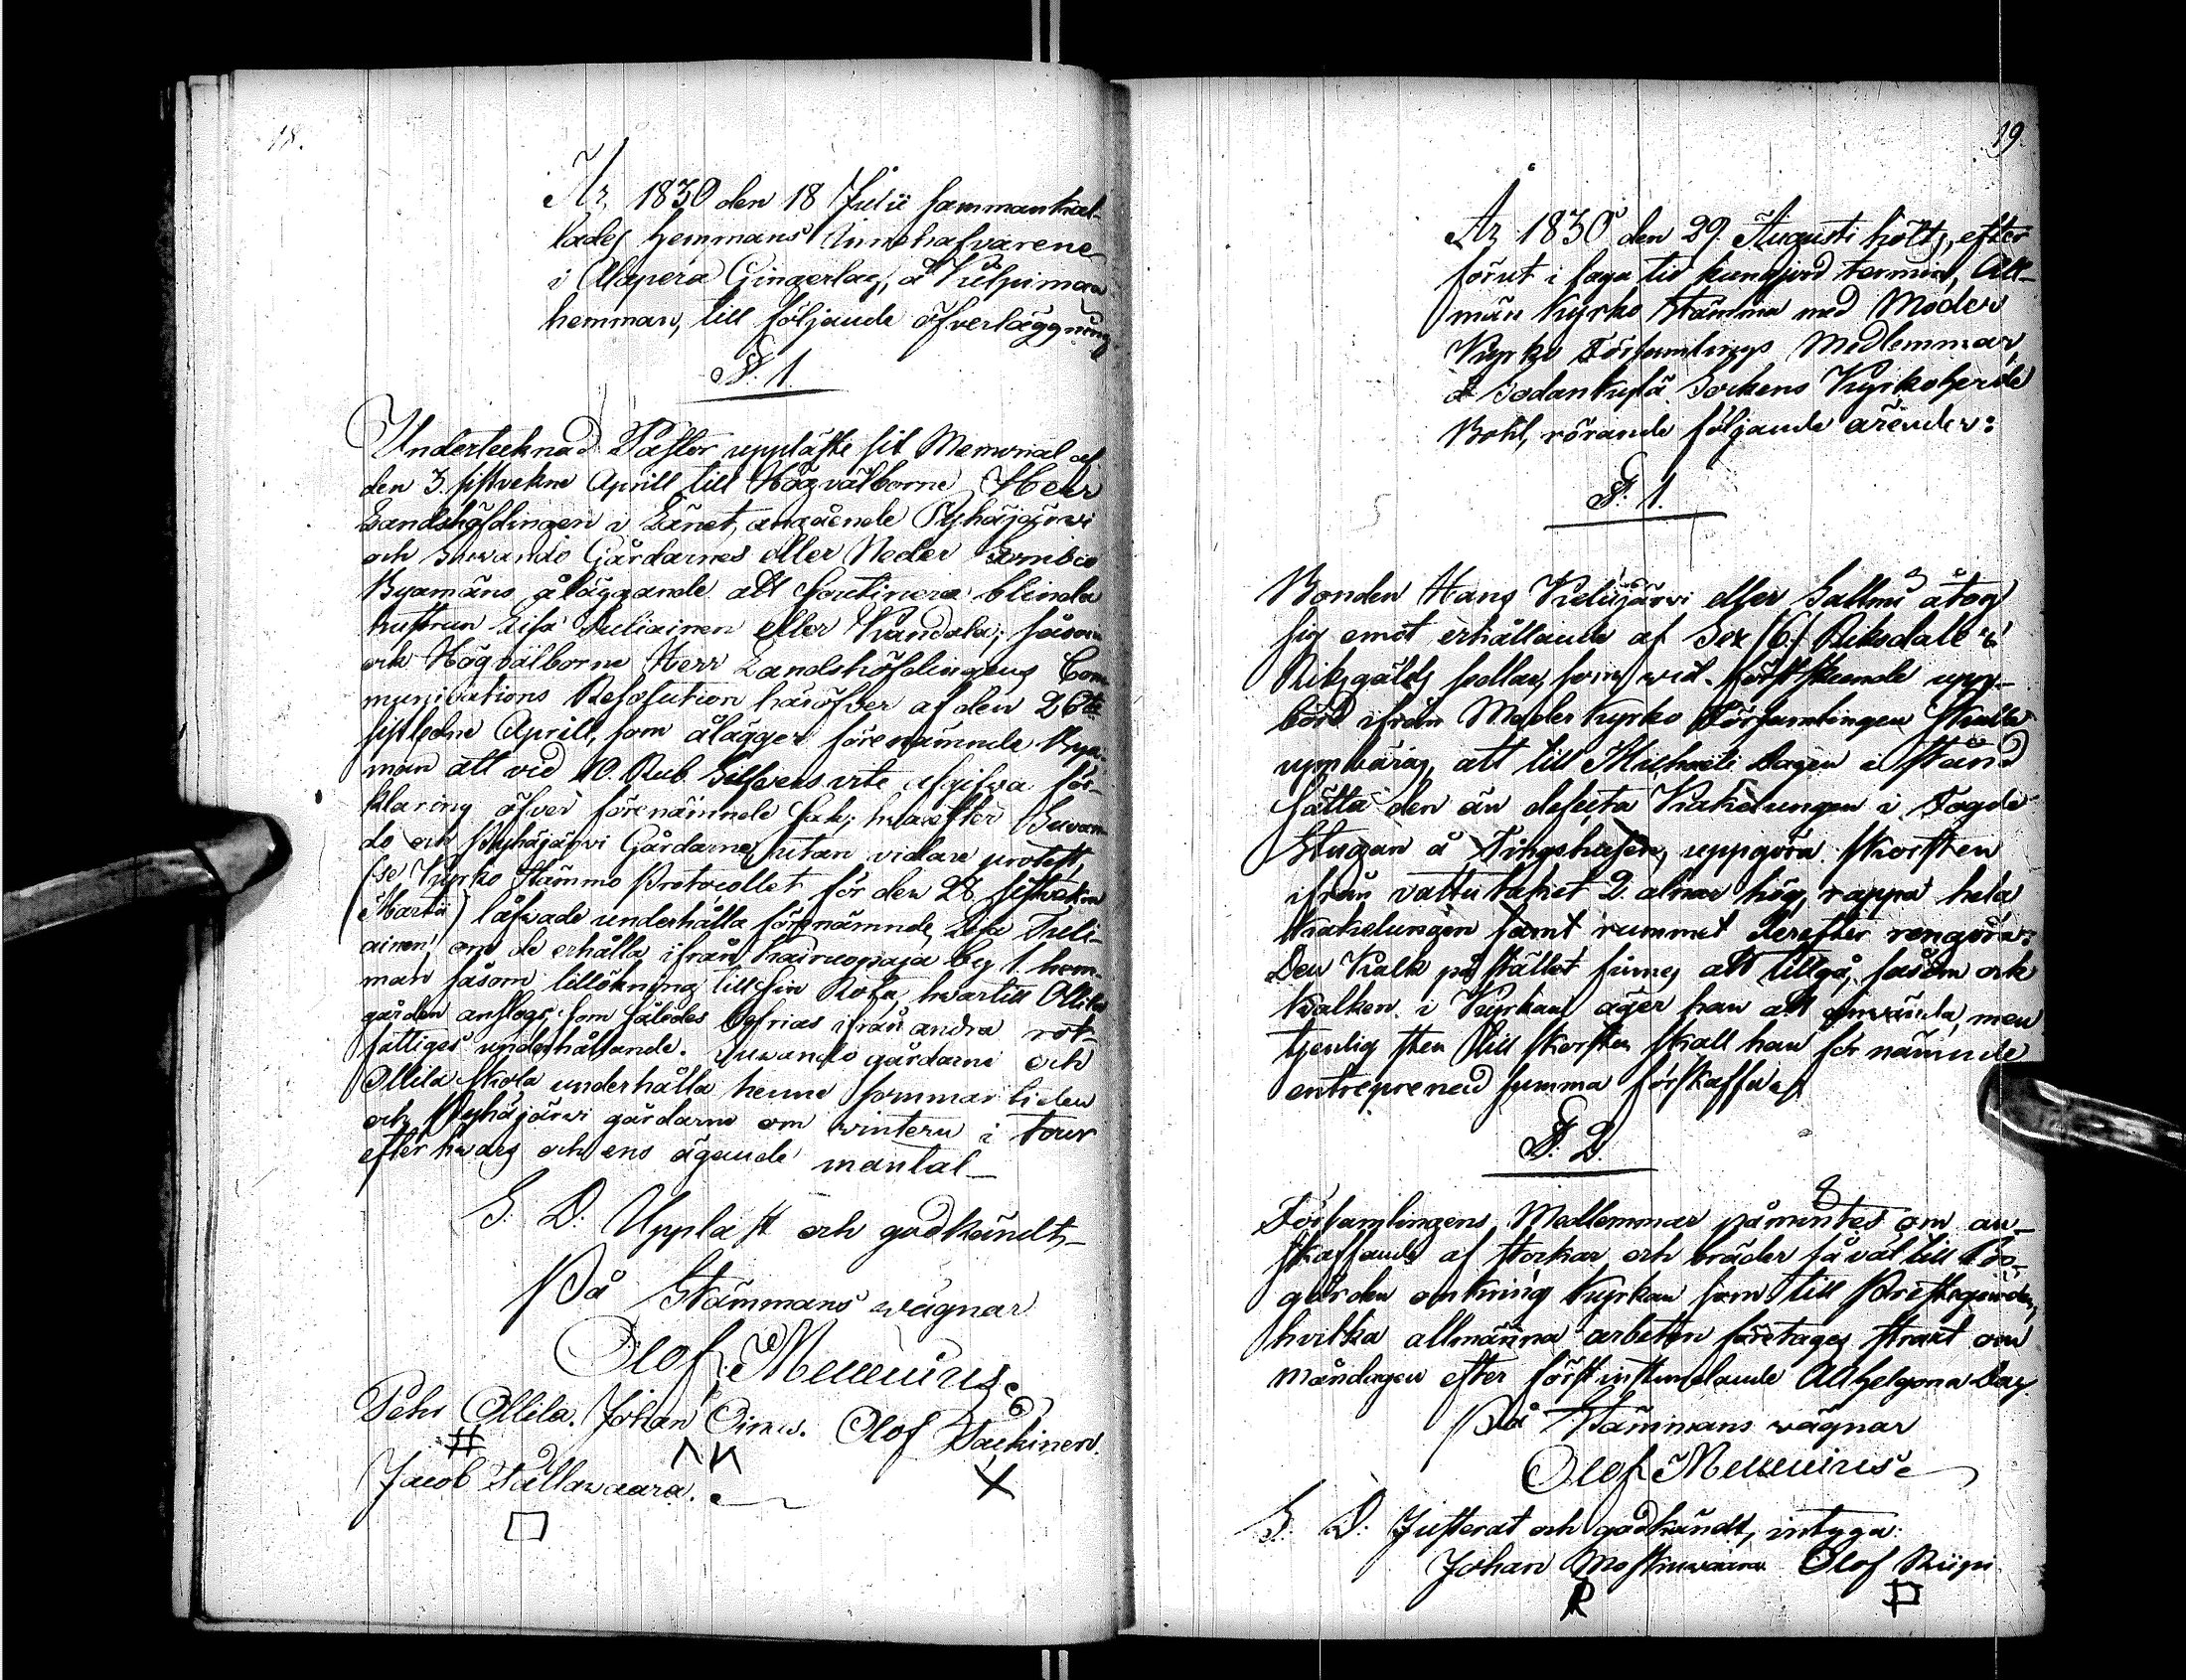 18.
År 1830 den 18 Julii sammankal-
lades Hemmans Innehafvarene
i Alaperä Gingerlag, å Külpimaa
hemman, till följande öfverläggning
§. 1.
Undertecknad Pastor uppläste sit Memorial af
den 3. sistvekne Aprill till Högvälborne Herr
Landshöfdingen i Länet, angående Pyhäjärvi
och Suvando Gårdarnes eller Neder Sombio
Byamäns åläggande att soutinera blinda
hustrun Lisa Juliainen eller Kandala; såsom
ock Högvälborne Herr Landshöfdingens Com
munications Resolution häröfver af den 26te
sistledne Aprill, som ålägger förenämnde Bya-
män att vid 10. Rub. Silfvers vite afgifwa för-
klaring öfver förenämnde sak; hwarefter Suvan
do och Pyhäjärvi Gårdarne, utan vidare protest,
(se Kyrko Stämmo Protocollet för den 28 sistvekne
Martii) låfwade underhålla förenämnde Lisa Juli-
ainen, om de erhålla ifrån Kairuopaja by 1. hem-
man såsom tillökning till sin Rota, hwartill Ollila
gården anslogs, som således befrias ifrån andra rot-
fattiges underhållande. Suwando gårdarne och
Ollila skola underhålla henne sommar tiden
och Pyhäjärvi gårdarne om wintern i tour
efter hwars och ens ägande mantal_
S. D. Uppläst och godkändt,_
På Stämmans wägnar
Olof Mellenius
Pehr Ollila. Johan Olof Packinen.
Jacob Tällawaara.
19.
År 1830 den 29. Augusti höltz, efter
förut i laga tid kungjord termin, All-
män Kyrko Stämma med Moder
Kyrko Församlings Medlemmar,
å Sodankylä Sockens Kyrkoherde
Bohl, rörande följande ärender:
§. 1.
Bonden Hans Kelujärvi eller Sattmi åtog
sig emot erhållande af Sex (6.) Riksdaler
Riksgälds sedlar, som wid förstskeende upp-
börd ifrån Moder Kyrko Församlingen skulle
uppbäras, att till Michaeli Dagen i stånd
sätta den än defecta Kakelungen i Fogde
Stugan å Tingshusen, uppgöra skorsten
ifrån vattutaket 2. alnar hög, rappa hela
Kakelungen samt rummet derefter rengöra.
Den Kalk på stället finnes att tillgå, såsom ock
Kalken i Kyrkan äger han att använda, men
tjenlig sten till skorsten skall han för nämnde
entreprenad summa förskaffa.
§. 2.
Församlingens Medlemmar påmintes om an-
skaffande af stockar och bräder så väl till Bo-
gården omkring Kyrkan som till Prestegården,
hvilka allmänna arbeten företages straxt om
Måndagen efter först instundande Allhelgona Dag
På Stämmans wägnar
Olof Mellenius
S. D. Justerat och godkändt, intyga:
Johan Moskuwaara Olof Riipi